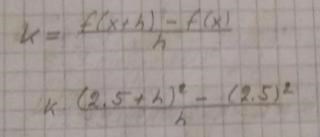 K = \frac{f(x+h) - f(x)}{h}
K \frac{(2.5+h)^2 - (2.5)^2}{h}